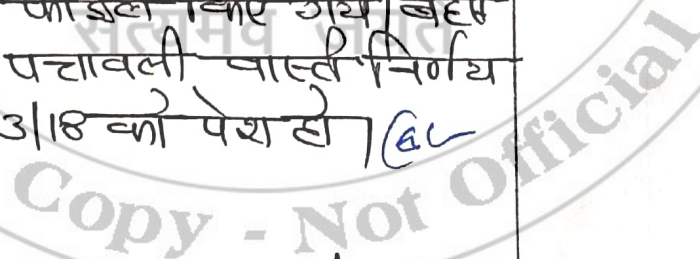 फाइल किए गये। बहस
पत्रावली वास्ते निर्णय
3/18 को पेश हो।
सत्यमेव जयते
Copy - Not Official